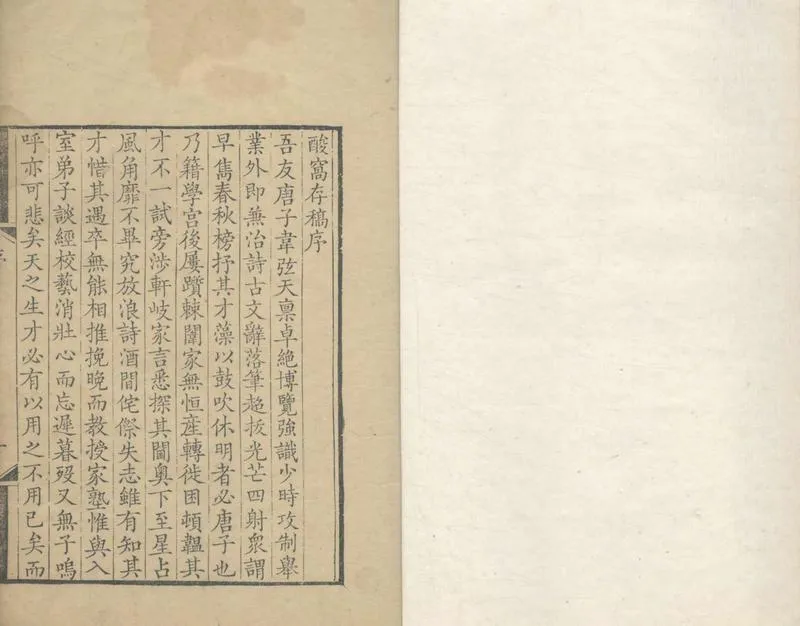 酸窩存稿序
吾友唐子韋弦天稟卓絶博覽強識少時攻制舉
業外即兼冶詩古文辭落筆超拔光芒四射衆謂
早雋春秋榜抒其才藻以鼓吹休明者必唐子也
乃籍學宫後屢躓棘闈家無恒産轉徙困頓韞其
才不一試旁涉軒岐家言悉探其閫奥下至星占
風角靡不畢究放浪詩酒間侘傺失志雖有知其
才惜其遇卒無能相推挽晚而教授家塾惟與入
室弟子談經校藝消壯心而忘遲暮歿又無子嗚
呼亦可悲矣天之生才必有以用之不用已矣而
序
一